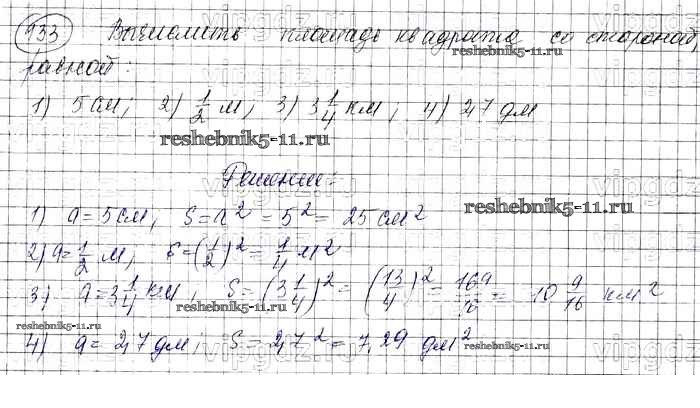 933 Вычислить площадь квадрата со стороной,
равной:
1) 5 см; 2) 1/2 м; 3) 3 1/4 км; 4) 2,7 дм
Решение:
1) a = 5 см, S = a² = 5² = 25 см²
2) a = 1/2 м, S = (1/2)² = 1/4 м²
3) a = 3 1/4 км, S = (3 1/4)² = (13/4)² = 169/16 = 10 9/16 км²
4) a = 2,7 дм, S = 2,7² = 7,29 дм²
reshebnik5-11.ru
reshebnik5-11.ru
reshebnik5-11.ru
reshebnik5-11.ru
reshebnik5-11.ru
reshebnik5-11.ru
vipgdz.com